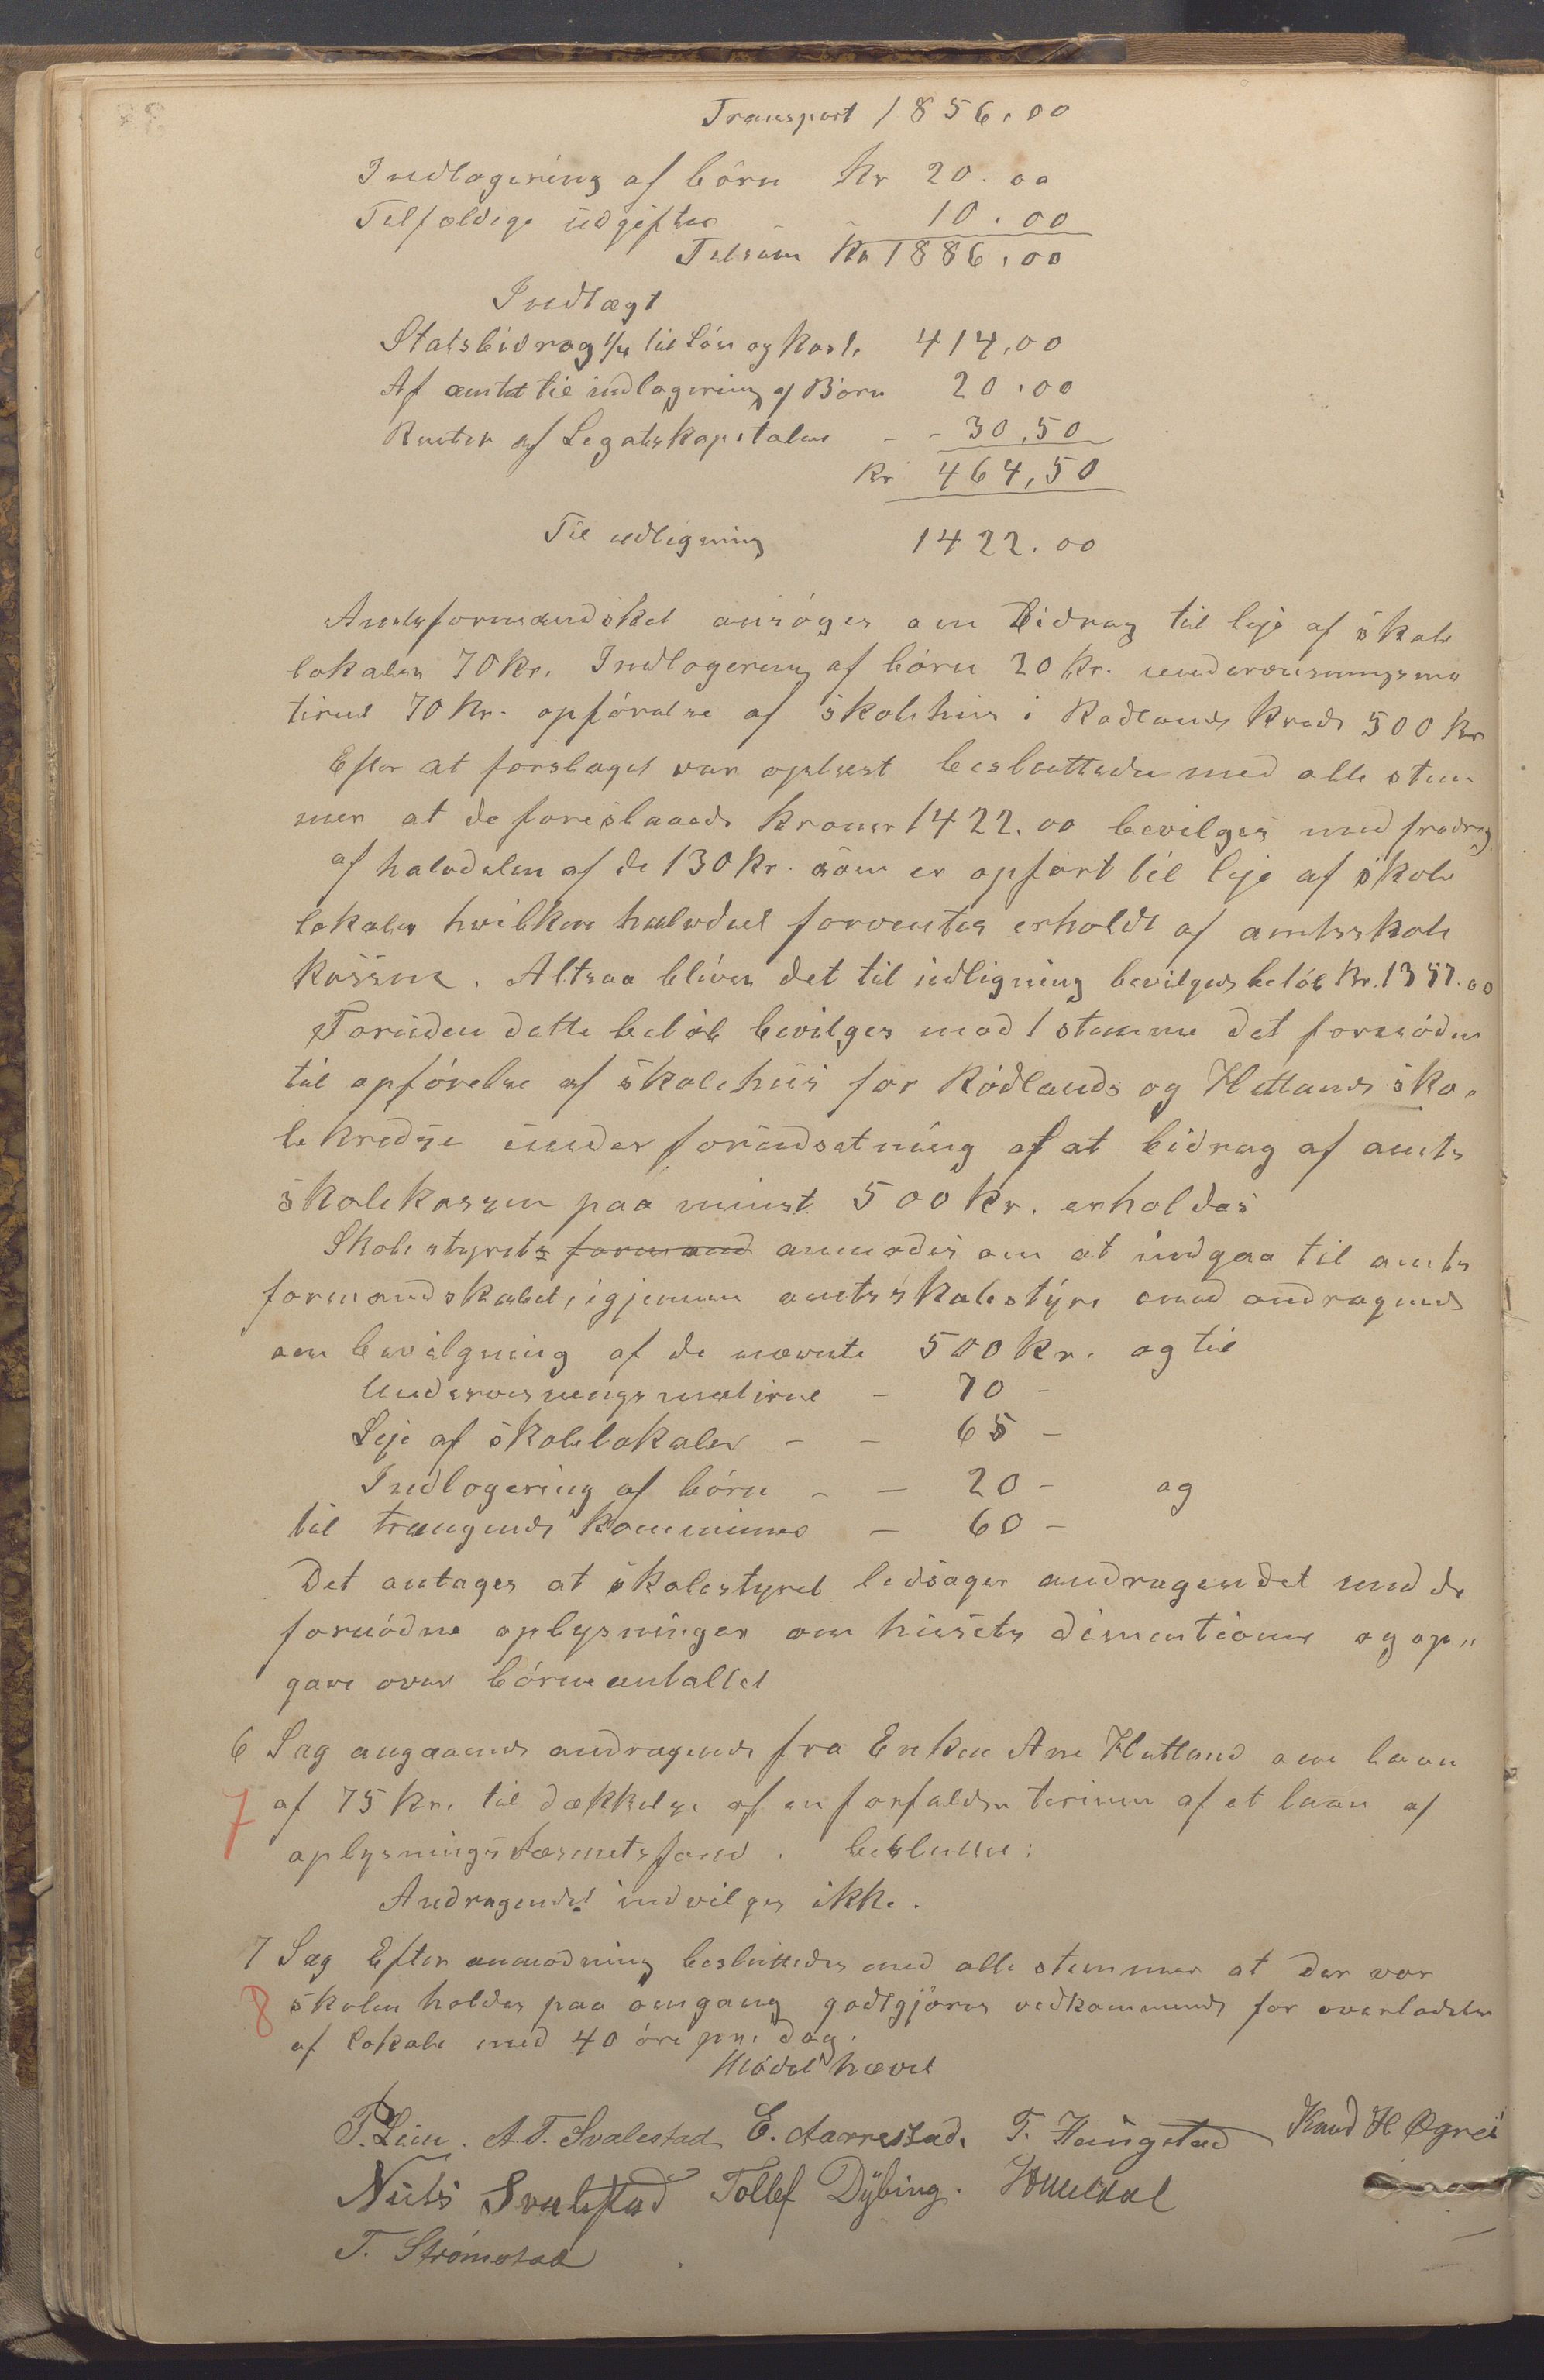 Transport 1856.00
Indlogering af börn Kr 20.00
Tilfældige udgifter - 10.00
Tilsam Kr 1886.00
Indtægt
Statsbidrag 1/4 til Lön og Kost. 414,00
Af amtet til indlogering af Börn 20.00
Renter af Legatskapitalen - - 30,50
Kr 464,50
Til udligning 1422.00
Amtsformandskabet ansöges om Bidrag til leje af skole
lokaler 70 Kr. Indlogering af börn 20 Kr. undervisningsma
teriel 70 Kr. opförelse af skolehus i Rödlands Kreds 500 Kr
Efter at forslaget var oplæst besluttedes med alle stem
mer at de foreslaaede Kroner 1422.00 bevilges med fradrag
af halvdelen af de 130 Kr. som er opfört til leje af skole
lokaler hvilken halvdel forventes erholdt af amtsskole
kassen. Altsaa bliver det til udligning bevilgede belöb Kr. 1357.00
Foruden dette belöb bevilges mod 1 stemme det fornödne
til opförelse af skolehus for Rödlands og Hetlands sko„
lekredse under forudsætning af at bidrag af amts
skolekassen paa minst 500 Kr. erholdes
Skolestyrets formand anmodes om at indgaa til amts
formandskabet, igjennem amtsskolestyre med andragende
om bevilgning af de nævnte 500 Kr. og til
Undervisningsmateriel - 70 -
Leje af skolelokaler - - 65 -
Indlogering af börn - - 20 - og
til trængende Kommuner - 60 -
Det antages at skolestyret ledsager andragendet med de
fornödne oplysninger om husets dimentioner og op„
gave over börneantallet
6 Sag angaaende andragende fra Enken Ane Hetland om laan
7 af 75 Kr. til dækkelse af en forfalden termin af et laan af
oplysningsvæsenets fond. beslutter:
Andragendet indvilges ikke.
7 Sag Efter anmodning besluttedes med alle stemmer at der vor
8 skolen holdes paa omgang godtgjöres vedkommende for overladelse
af lokale med 40 öre pr. dag.
Mödet hævet
P. Lien. A. T. Svalestad E. Aarrestad. T. Haugstad Knud H Øgrei
Niels Svalestad Tollef Dÿbing.
T. Strömstad